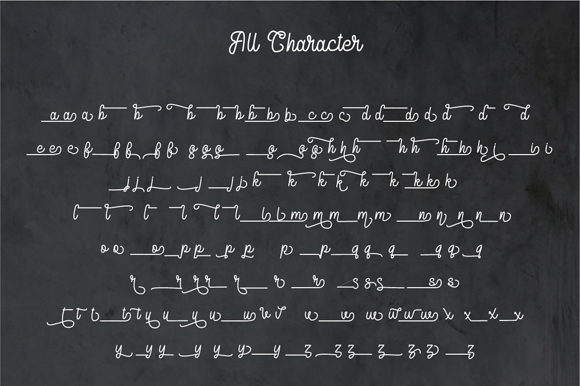 All Character
a a a b b b b b b b c c c d d d d d d d
e e e f f f f f g g g g g g h h h h h h h i i i
j j j j j j b k k k k k k k k k
l l l l l l l l m m m m m n n n n n
o o o p p p p p p q q q q q q
r r r r r r r s s s s s
t t t t t u u u u u v v v v w w w w x x x x
y y y y y y y z z z z z z z